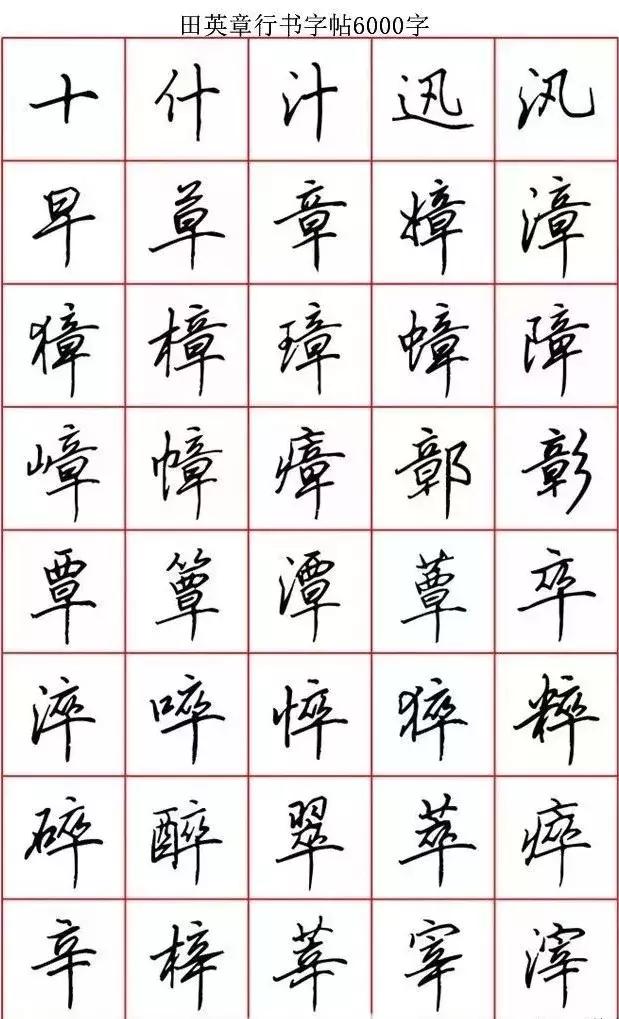 田英章行书字帖6000字
十什汁迅汛
早草章嫜漳
獐樟璋蟑障
嶂幛瘴鄣彰
覃簟潭蕈卒
淬啐悴猝粹
碎醉翠萃瘁
辛梓莘宰滓